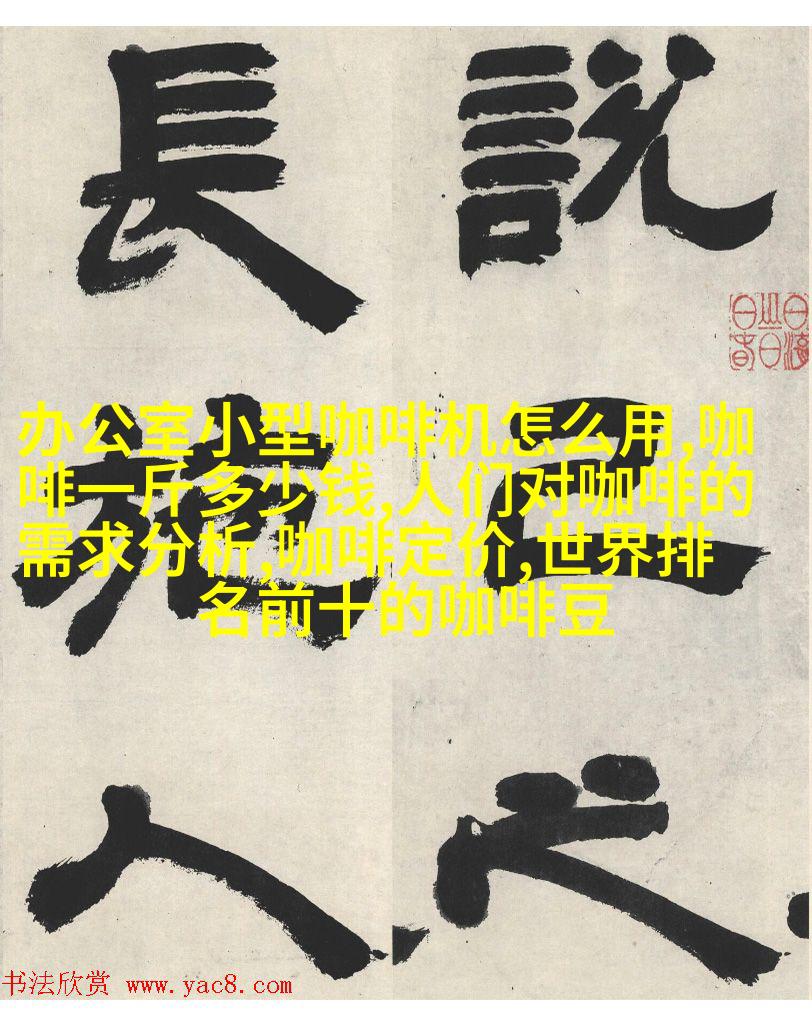 說己之
長施人
办公室小型咖啡机怎么用,咖
啡一斤多少钱,人们对咖啡的
需求分析,咖啡定价,世界排
名前十的咖啡豆
书法欣赏 www.yac8.com